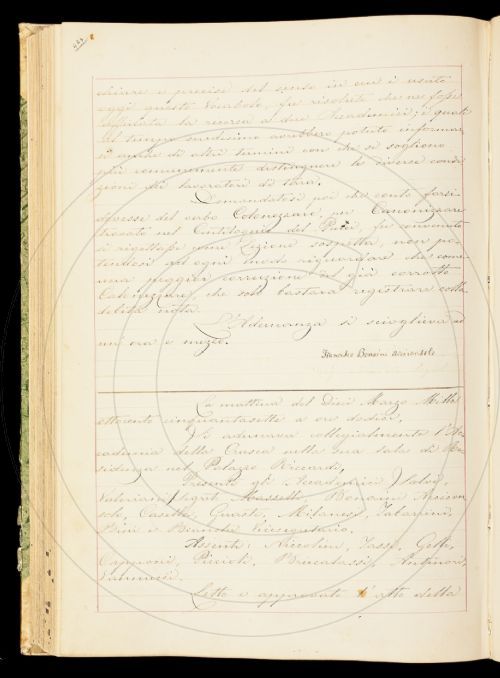 chiare e precise del senso in cui è usato
oggi questo Vocabolo, fu risoluto che ne fosse
affidata la ricerca a due Accademici; i quali
al tempo medesimo avrebbero potuto informar
si anche di altri termini con che si sogliono
più comunemente distinguere le diverse condi
zioni dei lavoratori di terra.
Domandatosi poi che conto farsi
dovesse del verbo Colonizzare, per Canonizzare
trovato nel Centiloquio del Pucci, fu convenuto
si rigettasse come lezione sospetta, non po
tendosi ad ogni modo riguardare che come
una peggior corruzione del già corrotto
Calonizzare, che solo bastava registrare colla
debita nota.
L'Adunanza si scioglieva ad
un'ora e mezzo.
Francesco Bonaini Arciconsolo
La mattina del Dieci Marzo Mille
ottocento cinquantasette a ore dodici,
Si adunava collegialmente l'Ac
cademia della Crusca nella sua sala di Re
sidenza nel Palazzo Riccardi,
Presenti gli Accademici Salvi,
Valeriani, Segret. Masselli, Bonaini Arcicon
solo, Casella, Guasti, Milanesi, Tabarrini,
Bini e Bianchi Vicesegretario.
Assenti: Niccolini, Tassi, Gelli,
Capponi, Puccioli, Brucalassi, Antinori,
Vannucci.
Letto e approvato l'atto della